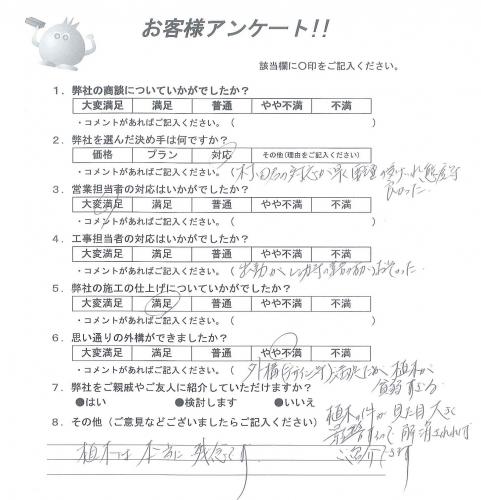 お客様アンケート!!
該当欄に〇印をご記入ください。
1. 弊社の商談についていかがでしたか?
大変満足 満足 普通 やや不満 不満
・コメントがあればご記入ください。( )
2. 弊社を選んだ決め手は何ですか?
価格 プラン 対応 その他(理由をご記入ください)
・コメントがあればご記入ください。(
3. 営業担当者の対応はいかがでしたか?
大変満足 満足 普通 やや不満 不満
・コメントがあればご記入ください。( )
4. 工事担当者の対応はいかがでしたか?
大変満足 満足 普通 やや不満 不満
・コメントがあればご記入ください。(
5. 弊社の施工の仕上げについていかがでしたか?
大変満足 満足 普通 やや不満 不満
・コメントがあればご記入ください。( )
6. 思い通りの外構ができましたか?
大変満足 満足 普通 やや不満 不満
・コメントがあればご記入ください。( 外構 植木が
貧弱すぎる
7. 弊社をご親戚やご友人に紹介していただけますか?
●はい ●検討します ●いいえ
植木の件が 見た目 大きく
解消されれば
ご紹介できます
8. その他(ご意見などございましたらご記入ください)
植木は 本当に 残念です